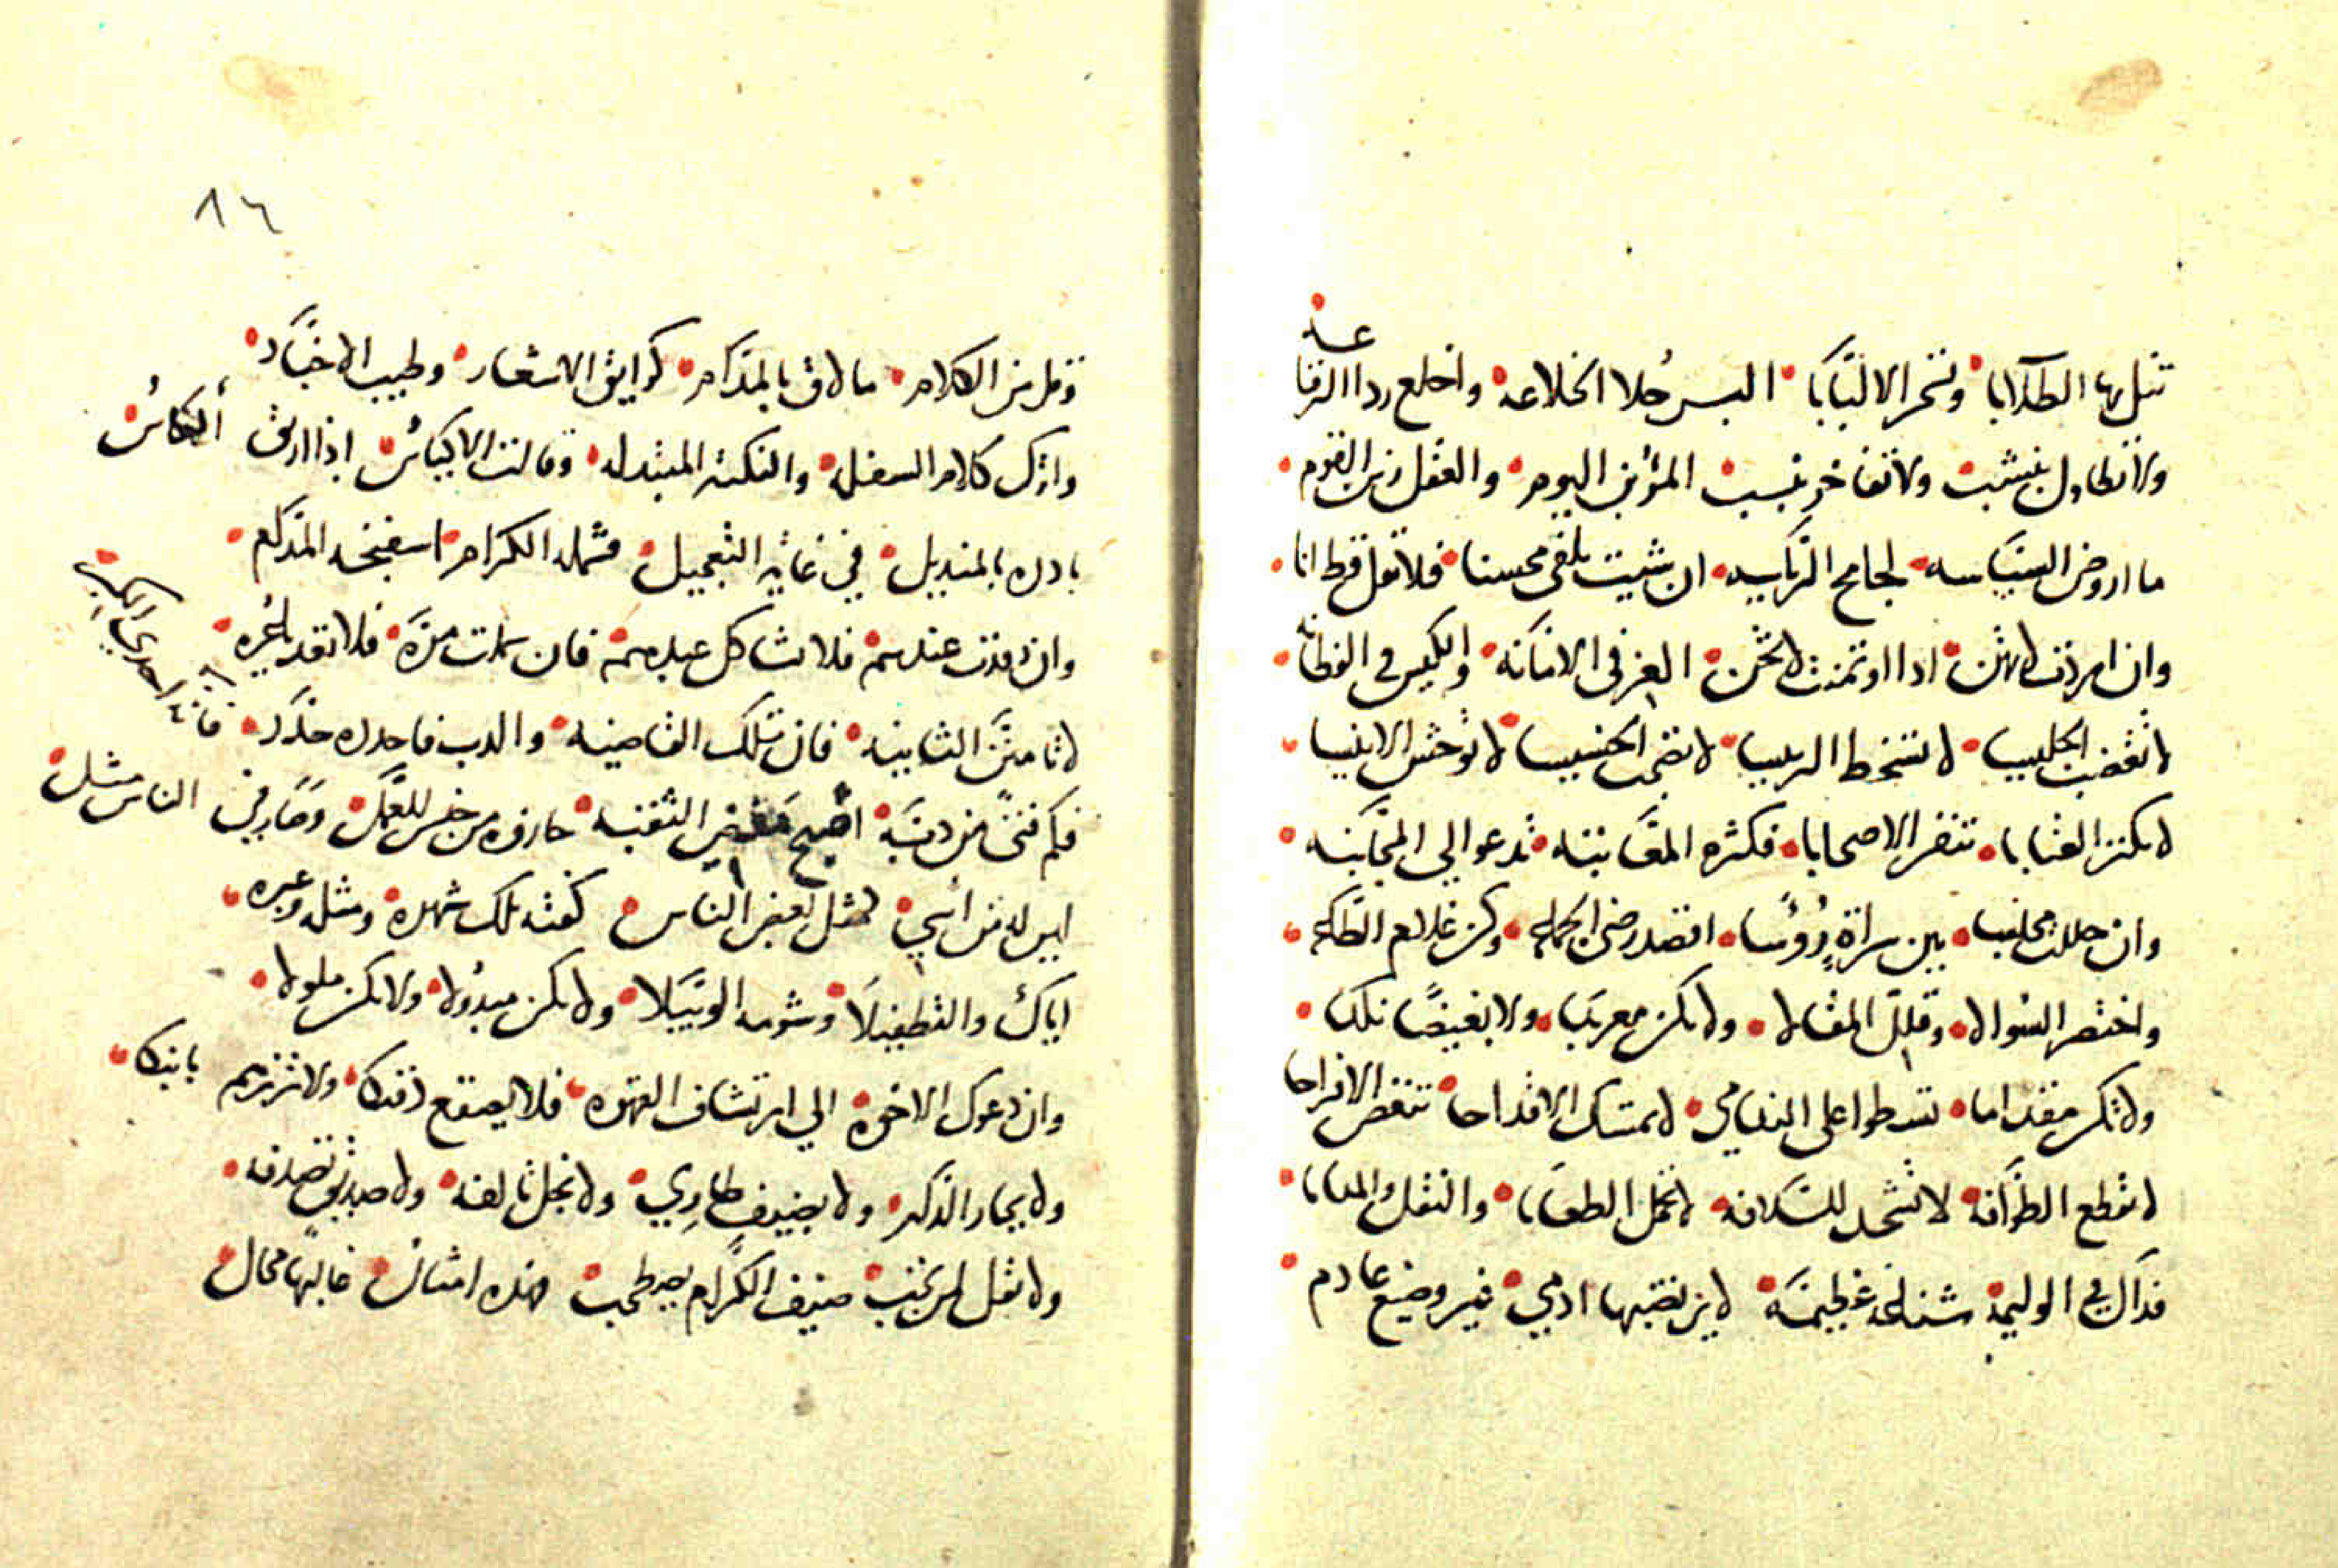 تنل بها الطلابا • وتسحر الالبابا • البس حُلا الخلاعه • واخلع ردا الرقاعه •
ولا تطاول بنشب ولا تفاخر بنسب • المرؤ ابن اليوم • والعقل زين القوم •
ما اروض السياسه • لجامح الرياسه • ان شيت تلقى محسنا • فلا تقل قط انا •
وان اهــ لا تهن • اذا اوتمنت لا تخن • العز في الامانه • والكيس في الفطانه •
لا تغضب الجليسا • لا تسخط الرييسا • لا تصحب الخسيسا • لا توحش الانيسا •
لا تكثر العتابا • تنفر الاصحابا • فكثره المعاتبه • تدعو الي المجانبه •
وان حللت مجلسا • بين سراةٍ رُؤَسا • اقصد رضى الجماعه • وكن غلام الطاعه •
واختصر السوالا • وقلل المقالا • ولا تكن معربدا • ولا بغيضًا نكدا •
ولا تكن مقداما • تسطوا على الندامي • لا تمسك الاقداحا • تنغص الافراحا
لا تقطع الطرافه • لا تشحد السلافه • لا تحمل الطعاما • والنقل والمداما •
فذاك في الوليمه • شناعة عظيمه • لا يرتضيها ادمي • غير وضيع عادم •
١٦
وقل من الكلام • ما لاق بالمدام • كرايق الاشعار • وطيب الاخبار •
واترك كلام السفله • والنكته المبتذله • وقالت الاكياس • اذا اريق الكاس •
بادره بالمنديل • في غايه التعجيل • فشمله الكرام • اسفنجه المدام •
وان رقدت عندهم • فلا تشاكل عبدهم • فان سلمت مرَّة • فلا تعد بالغره •
لا تامنَنَّ الثانيه • فان تلك القاضيه • والدب فاحذره حذار • فانه احدي الكبر
فكم فتى من دبه • اصبح مفضي الثقبه • جازوه من جنس العمل • وصار في الناس مثل •
ايس له من اسي • لمثل بعض الناس • كفته تلك شهره • ومثله وعبره •
اياك والتطفيلا • وشومه الوبيلا • ولا تكن مبذولا • ولا تكن ملولا •
وان دعوك الاخوه • الي ارتشاف القهوه • فلا يصقع ذقنكا • ولا تزرهم بابنكا •
ولا بجار الدار • ولا بضيف طاري • ولا بخل تالفه • ولا صديق تصدفه •
ولا تقل لمن تحب • ضيف الكرام يصطحب • هذه امثال • غالبها محال •